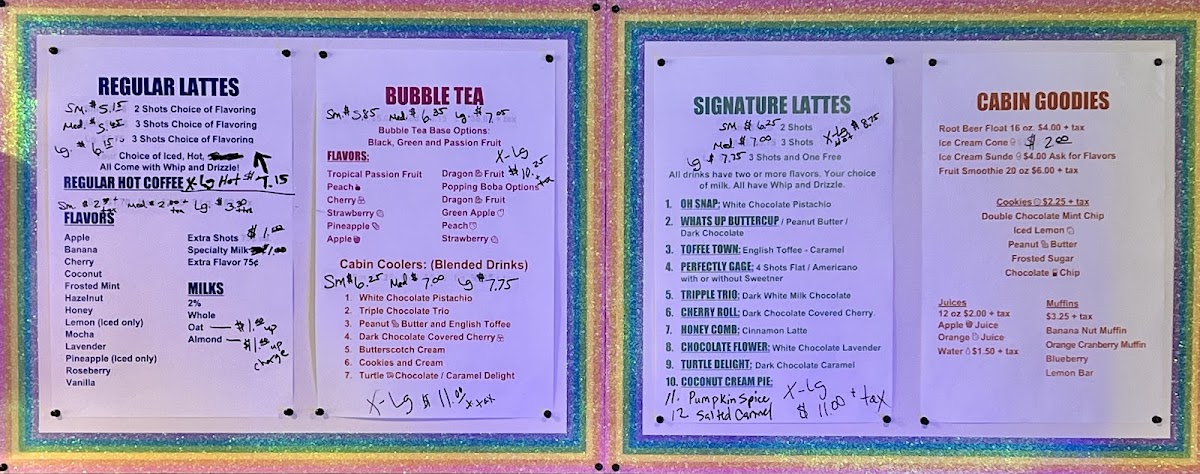 REGULAR LATTES
Sm. $5.15 2 Shots Choice of Flavoring
Med. 3 Shots Choice of Flavoring
Lg. $6.15 3 Shots Choice of Flavoring
Choice of Iced, Hot,
All Come with Whip and Drizzle!
REGULAR HOT COFFEE X-Lg Hot $7.15
Sm. Med. Lg.
FLAVORS
Apple
Banana
Cherry
Coconut
Frosted Mint
Hazelnut
Honey
Lemon (Iced only)
Mocha
Lavender
Pineapple (Iced only)
Roseberry
Vanilla
Extra Shots $1.00
Specialty Milk 1.00
Extra Flavor 75¢
MILKS
2%
Whole
Oat — $1.00 up
Almond — $1.00 up
charge
BUBBLE TEA
Sm. $5.85 Med. $6.35 Lg. $7.05
+ tax
Bubble Tea Base Options:
Black, Green and Passion Fruit
X-Lg
$10.25
tax
FLAVORS:
Tropical Passion Fruit
Peach
Cherry
Strawberry
Pineapple
Apple
Dragon Fruit
Popping Boba Options
Dragon Fruit
Green Apple
Peach
Strawberry
Cabin Coolers: (Blended Drinks)
Sm $6.25 Med $7.00 Lg $7.75
1. White Chocolate Pistachio
2. Triple Chocolate Trio
3. Peanut Butter and English Toffee
4. Dark Chocolate Covered Cherry
5. Butterscotch Cream
6. Cookies and Cream
7. Turtle Chocolate / Caramel Delight
X-Lg $11.00 + tax
SIGNATURE LATTES
SM $6.25 2 Shots
Med $7.00 3 Shots
Lg $7.75 3 Shots and One Free
X-Lg $8.75
Hot
All drinks have two or more flavors. Your choice
of milk. All have Whip and Drizzle.
1. OH SNAP: White Chocolate Pistachio
2. WHATS UP BUTTERCUP / Peanut Butter /
Dark Chocolate
3. TOFFEE TOWN: English Toffee - Caramel
4. PERFECTLY GAGE: 4 Shots Flat / Americano
with or without Sweetner
5. TRIPPLE TRIO: Dark White Milk Chocolate
6. CHERRY ROLL: Dark Chocolate Covered Cherry.
7. HONEY COMB: Cinnamon Latte
8. CHOCOLATE FLOWER: White Chocolate Lavender
9. TURTLE DELIGHT: Dark Chocolate Caramel
10. COCONUT CREAM PIE:
11. Pumpkin Spice
12 Salted Carmel
X-Lg
$11.00 + tax
CABIN GOODIES
Root Beer Float 16 oz. $4.00 + tax
Ice Cream Cone $2.00
Ice Cream Sunde $4.00 Ask for Flavors
Fruit Smoothie 20 oz $6.00 + tax
Cookies $2.25 + tax
Double Chocolate Mint Chip
Iced Lemon
Peanut Butter
Frosted Sugar
Chocolate Chip
Juices
12 oz $2.00 + tax
Apple Juice
Orange Juice
Water $1.50 + tax
Muffins
$3.25 + tax
Banana Nut Muffin
Orange Cranberry Muffin
Blueberry
Lemon Bar